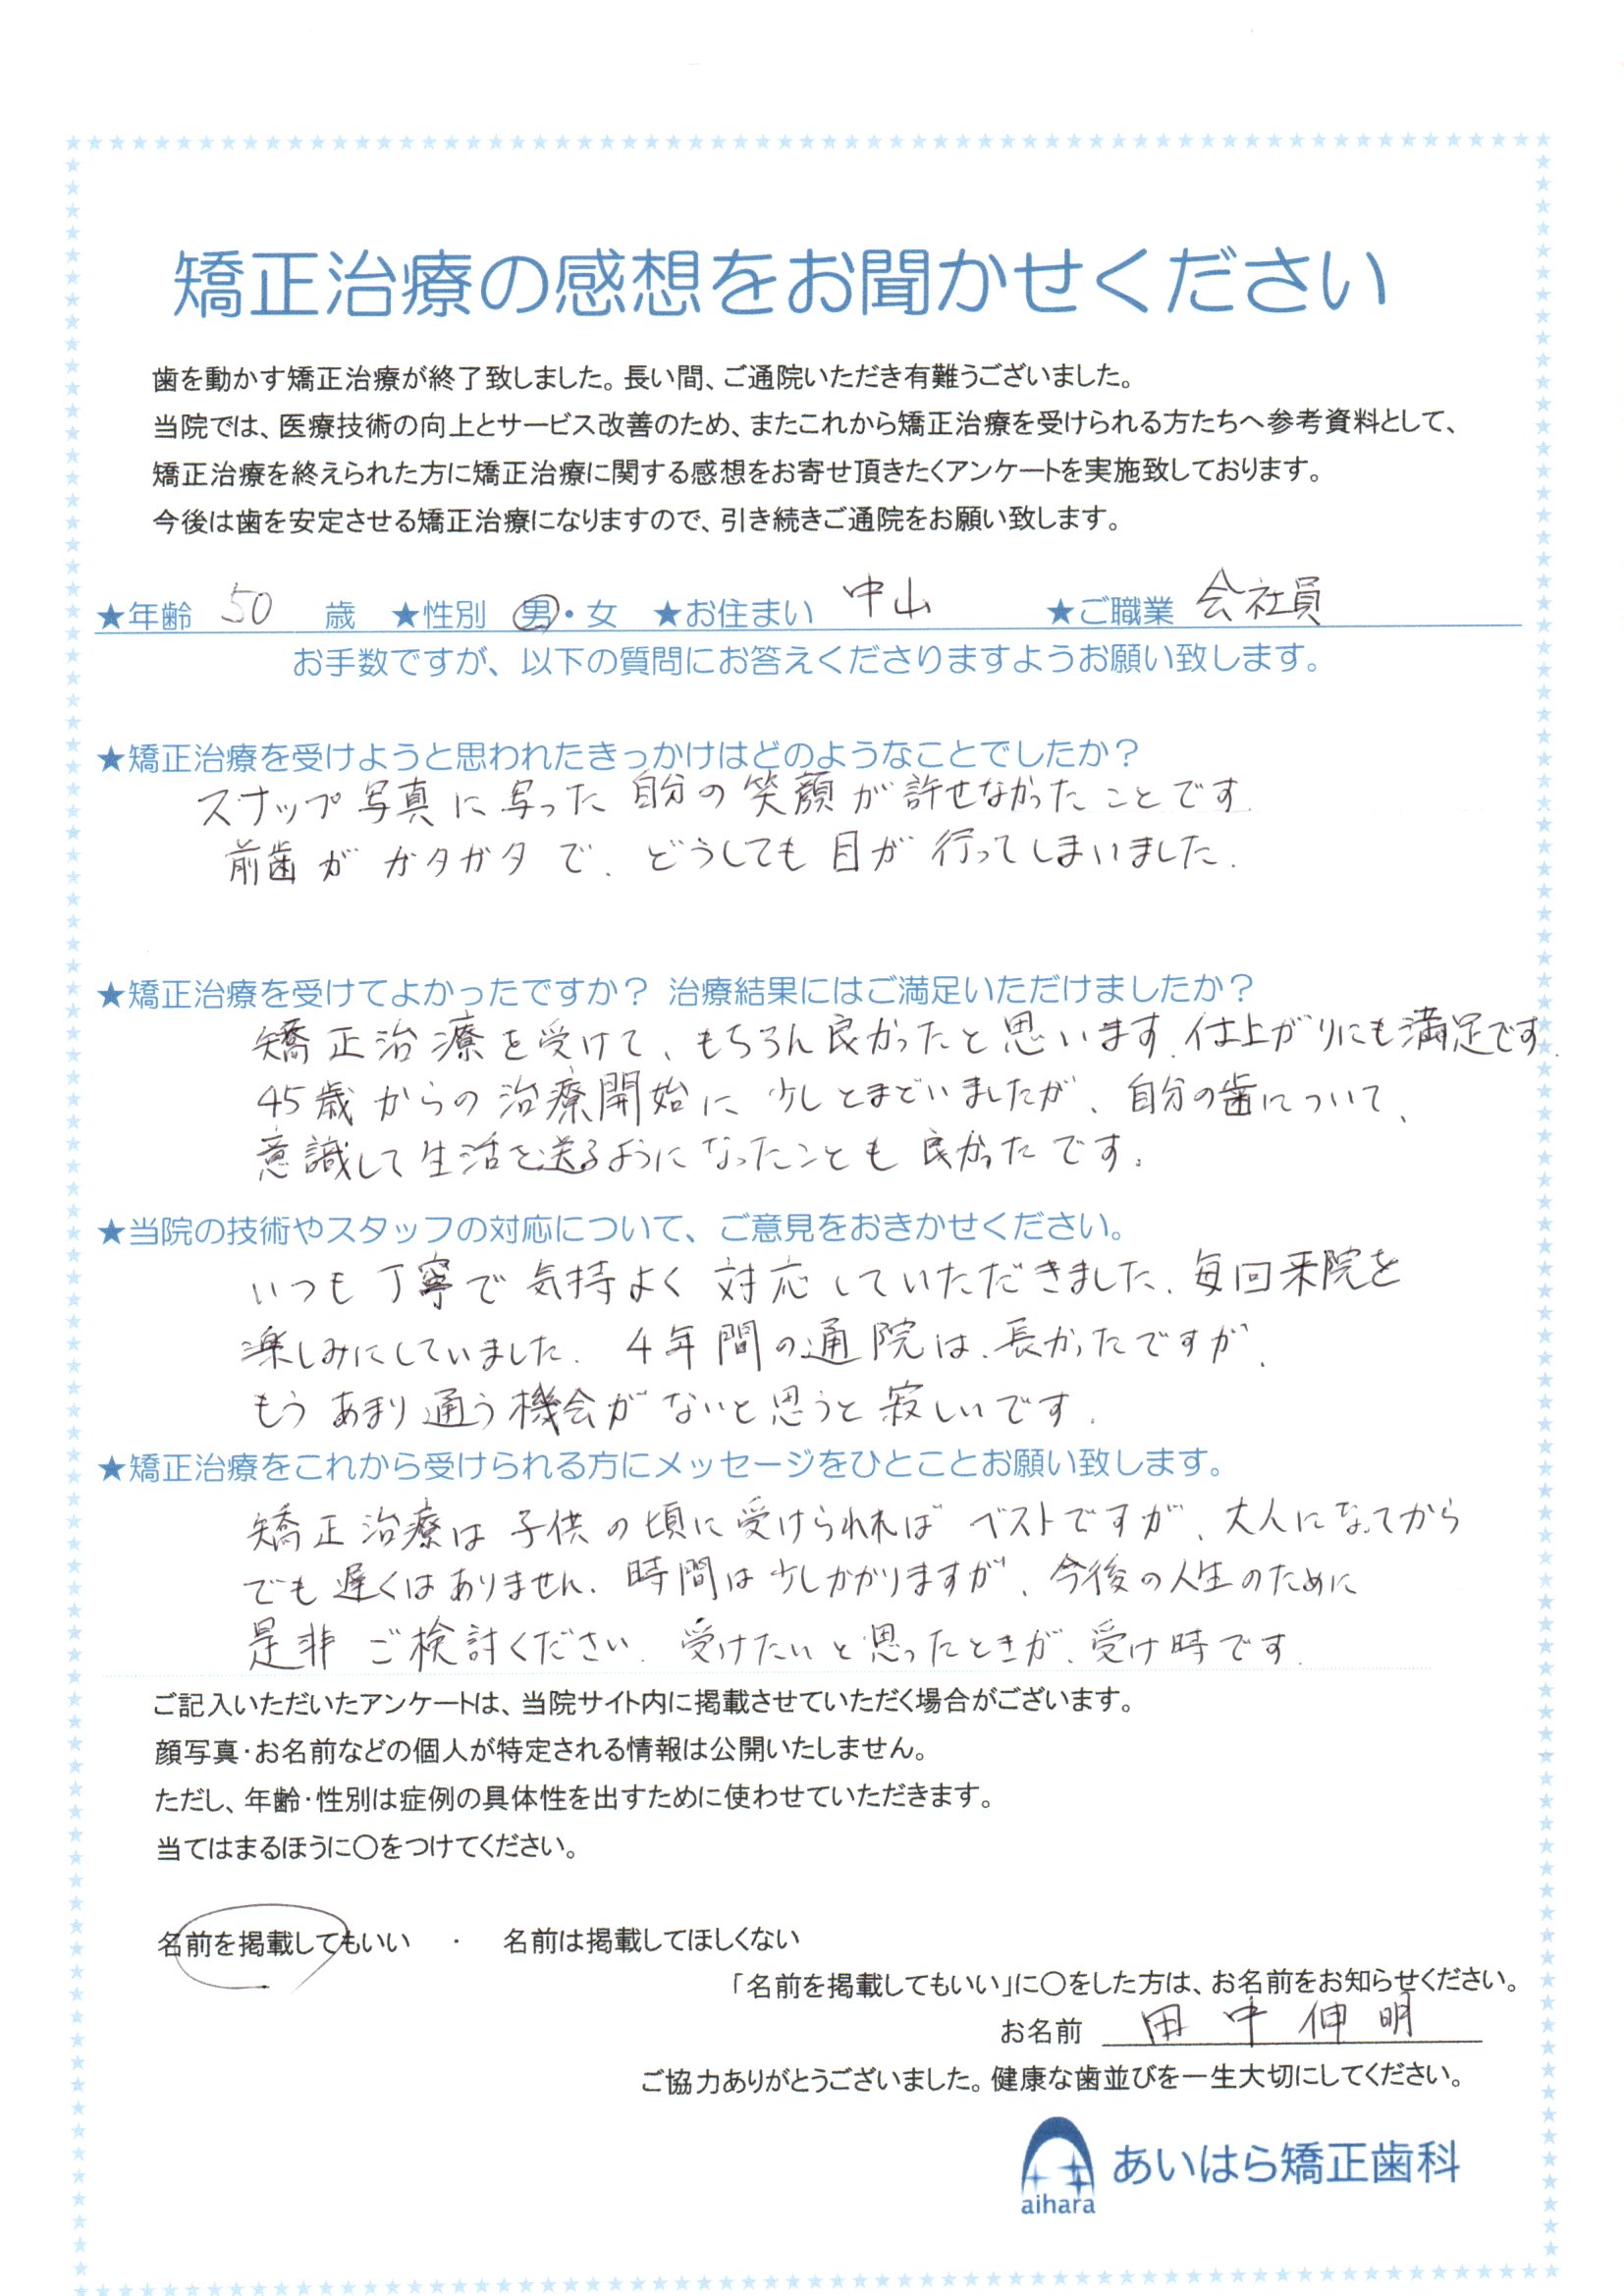 矯正治療の感想をお聞かせください
歯を動かす矯正治療が終了致しました。長い間、ご通院いただき有難うございました。
当院では、医療技術の向上とサービス改善のため、またこれから矯正治療を受けられる方たちへ参考資料として、
矯正治療を終えられた方に矯正治療に関する感想をお寄せ頂きたくアンケートを実施致しております。
今後は歯を安定させる矯正治療になりますので、引き続きご通院をお願い致します。
★年齢 50 歳 ★性別 男・女 ★お住まい 中山 ★ご職業 会社員
お手数ですが、以下の質問にお答えくださりますようお願い致します。
★矯正治療を受けようと思われたきっかけはどのようなことでしたか？
スナップ写真に写った自分の笑顔が許せなかったことです.
前歯がガタガタで、どうしても目が行ってしまいました.
★矯正治療を受けてよかったですか？ 治療結果にはご満足いただけましたか？
矯正治療を受けて、もちろん良かったと思います.仕上がりにも満足です.
45歳からの治療開始に少しとまどいましたが、自分の歯について、
意識して生活を送るようになったことも良かったです。
★当院の技術やスタッフの対応について、ご意見をおきかせください。
いつも丁寧で気持よく対応していただきました.毎回来院を
楽しみにしていました.4年間の通院は、長かったですが、
もうあまり通う機会がないと思うと寂しいです.
★矯正治療をこれから受けられる方にメッセージをひとことお願い致します。
矯正治療は子供の頃に受けられればベストですが、大人になってから
でも遅くはありません.時間は少しかかりますが、今後の人生のために
是非ご検討ください.受けたいと思ったときが、受け時です.
ご記入いただいたアンケートは、当院サイト内に掲載させていただく場合がございます。
顔写真・お名前などの個人が特定される情報は公開いたしません。
ただし、年齢・性別は症例の具体性を出すために使わせていただきます。
当てはまるほうに○をつけてください。
名前を掲載してもいい ・ 名前は掲載してほしくない
「名前を掲載してもいい」に○をした方は、お名前をお知らせください。
お名前 田中伸明
ご協力ありがとうございました。健康な歯並びを一生大切にしてください。
aihara あいはら矯正歯科